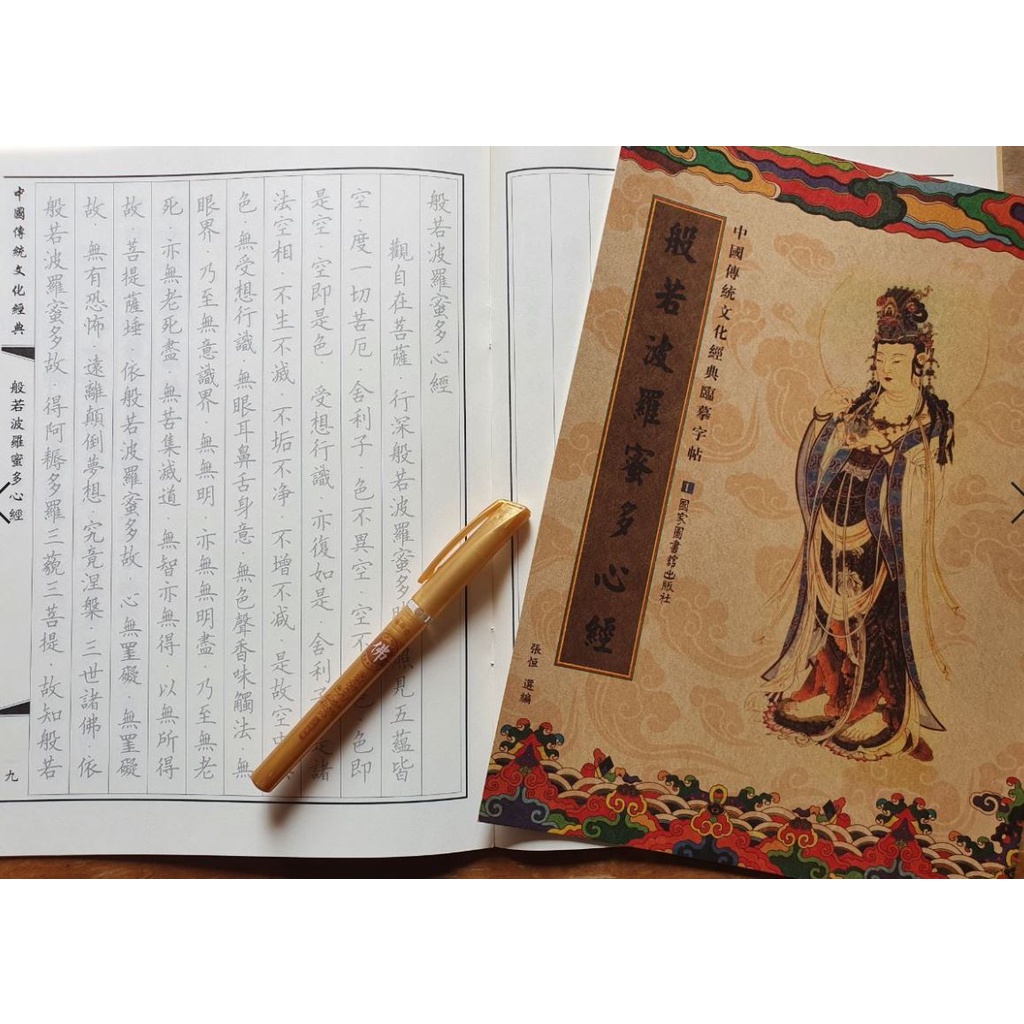 中國傳統文化經典臨摹字帖
1
國家圖書館出版社
般若波羅蜜多心經
張恒 選編
般若波羅蜜多心經
觀自在菩薩·行深般若波羅蜜多 見五蘊皆
空·度一切苦厄·舍利子·色不異空·空不 色即
是空·空即是色·受想行識·亦復如是·舍利 是諸
法空相·不生不滅·不垢不净·不增不减·是故空
色·無受想行識·無眼耳鼻舌身意·無色聲香味觸法·無
眼界·乃至無意識界·無無明·亦無無明盡·乃至無老
死·亦無老死盡·無苦集滅道·無智亦無得·以無所得
故·菩提薩埵·依般若波羅蜜多故·心無罣礙·無罣礙
故·無有恐怖·遠離顛倒夢想·究竟涅槃·三世諸佛·依
般若波羅蜜多故·得阿耨多羅三藐三菩提·故知般若
中國傳統文化經典
般若波羅蜜多心經
九
佛